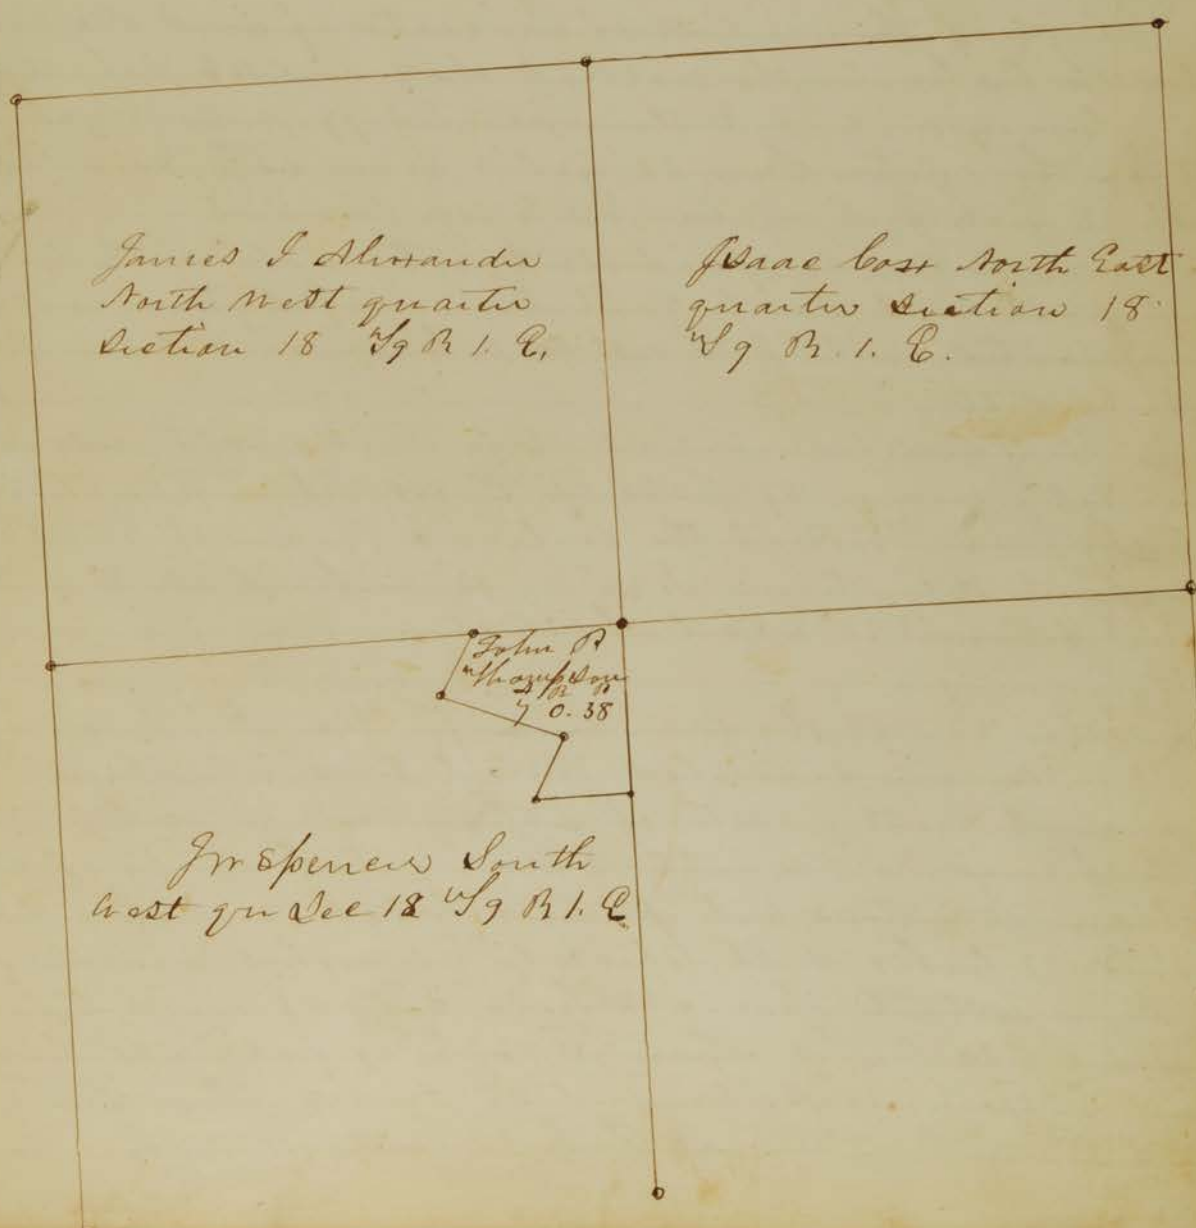 James I Alexander
North West quarter
Section 18 T 9 R 1. E.
Isaac Cox North East
quarter Section 18
T 9 R. 1. E.
John R
Thompson
A R P
7 0. 38
Spencer South
West qu Sec 18 T 9 R 1. E